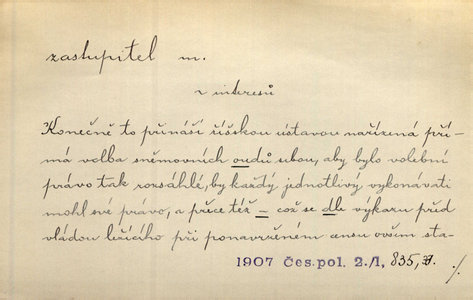 zastupitel m.
z interesů
Konečně to přináší říšskou ústavou nařízená pří-
má volba sněmovních oudů sebou, aby bylo volební
právo tak rozsáhlé, by každý jednotlivý vykonávati
mohl své právo, a přece též – což se dle výkazu před
vládou ležícího při ponavrženém censu ovšem sta-
1907 Čes. pol. 2./1, 835,